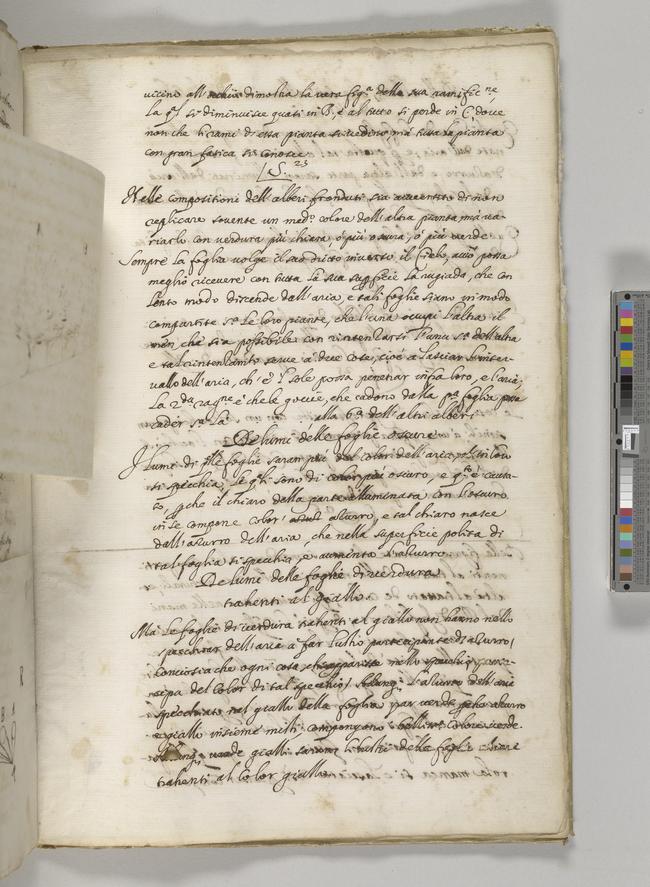 vicino all' dimostra la vera fig.ª della sua ramific.ne,
la q.l si diminuisce quasi in B, è al tutto si perde in C, dove
non che li rami di essa pianta si vedino, mà tutta la pianta
con gran fatica si conosce
S. 23
Nelle compositioni dell' alberi fronduti sia avvertito di non
replicare sovente un med.º colore dell' altra pianta mà va-
riarlo con verdura più chiara, ò più oscura, ò più verde
Sempre la foglia volge il suo dritto inverso il cielo, acciò possa
meglio ricevere con tutta la sua superficie la rugiada, che con
lento modo discende dall' aria, e tali foglie siano in modo
compartite s.ª le loro piante, che l'una occupi l'altra il
men che sia possibile con rintenzarsi l'una s.ª dell' altra
e tal rintenzam.to serve à due cose, cioè a lasciar l'inter-
vallo dell' aria, ch' e 'l sole possa penetrar infra loro, e l'aria,
La 2.da rag.ne è che le goccie, che cadono dalla p.ª foglia possa
cader s.ª la alla 6.ª dell' altri alberi
De lumi delle foglie oscure
I lumi di foglie saran più del color dell' aria in loro
si specchia, le q.li sono di color più oscuro, e q.to è causa-
to, che il chiaro della parte illuminata con l'oscuro
in se compone color azurro, e tal chiaro nasce
dall' azurro dell' aria, che nella superficie polita di
tal foglia si specchia, e aumenta l'azurro
De lumi delle foglie di verdura
trahenti al giallo.
Mà le foglie di verdura trahenti al giallo non hanno nello
specchiar dell' aria a far lustro partecipante di azurro,
conciosia che ogni cosa, che apparisce nello specchio, parti-
cipa del color di tal specchio, adunq.e l'azurro dell' aria
specchiato nel giallo della foglia par verde, perche azurro
e giallo insieme misti compongono bellissº colore verde.
verde gialli saranno li lustri delle foglie chiare
trahenti al color giallo